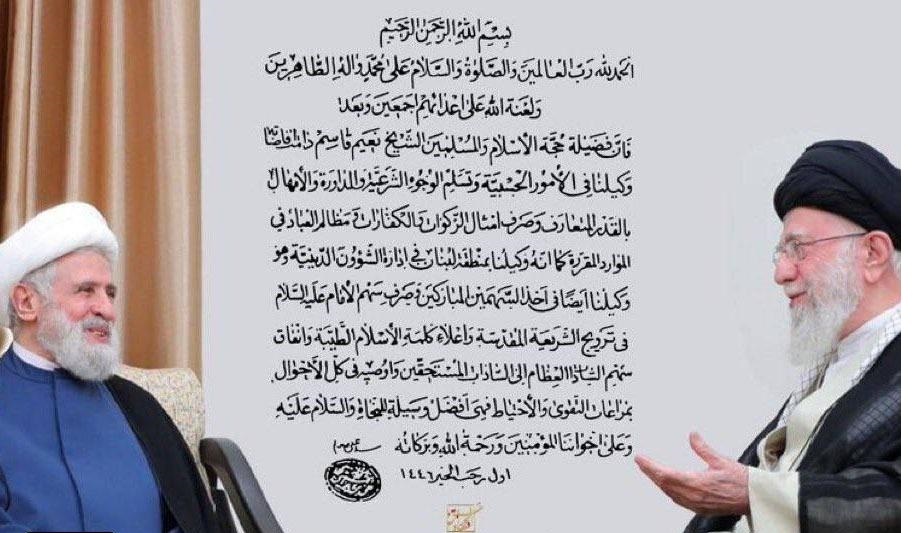 بِسْمِ اللهِ الرَّحْمنِ الرَّحيمِ
الحمد لله ربّ العالمين والصّلوة والسّلام على محمّد وآله الطّاهرين
ولعنة الله على اعدائهم اجمعين وبعد:
فانّ فضيلة حجّة الاسلام والمسلمين الشّيخ نعيم قاسم دامت افاضاته
وكيلنا في الأمور الحسبيّة وتسلّم الوجوه الشّرعيّة والمداورة والأمهال
بالقدر المتعارف وصرف امثال الزّكوات والكفّارات ومظالم العباد في
الموارد المقرّرة كما انّه وكيلنا بمنطقة لبنان في ادارة الشّؤون الدّينيّة وهو
وكيلنا ايضًا في اخذ السّهمين المباركين وصرف سهم الأمام عليه السّلام
في ترويج الشّريعة المقدّسة واعلاء كلمة الأسلام الطّيّبة وانفاق
سهم السّادة العظام الى السّادات المستحقّين واوصيه في كلّ الأحوال
بمراعات التّقوى والأحتياط فهي افضل وسيلة للنجاة والسّلام عليه
وعلى اخواننا المؤمنين ورحمة الله وبركاته
اول رجب الخير ١٤٤٦